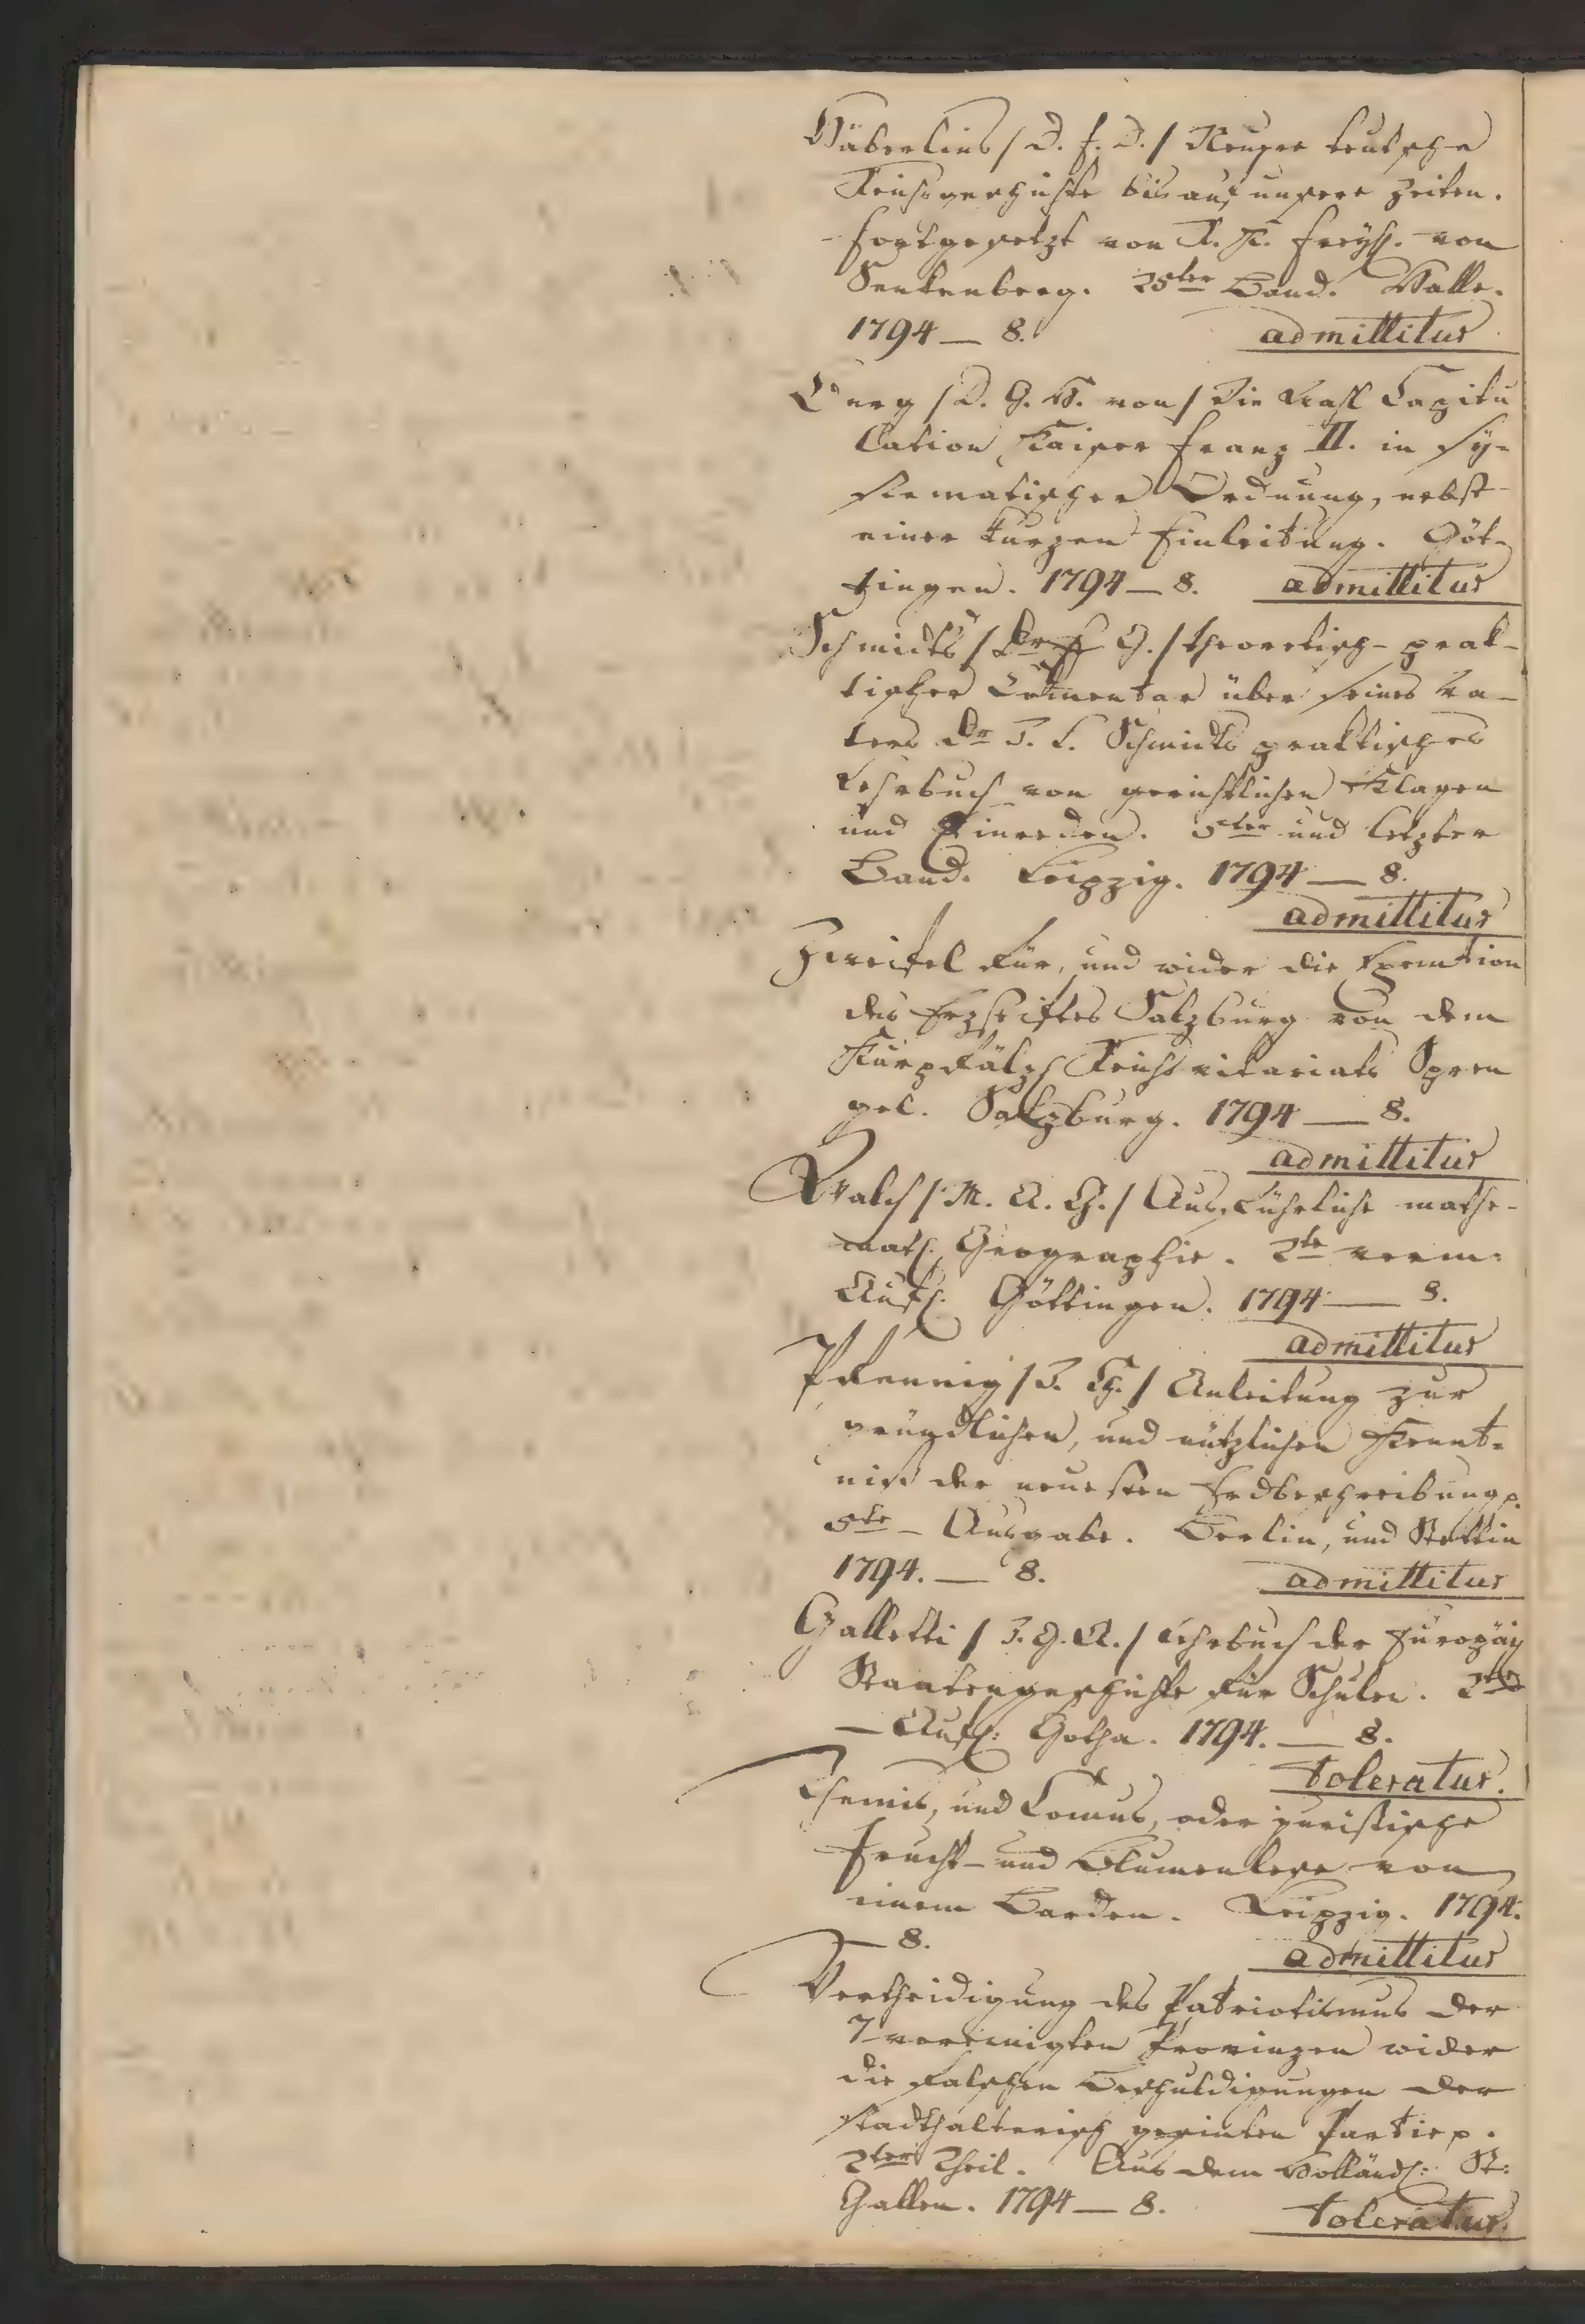 Häberlins /D. F. D./ Neuere teutsche
Reichsgeschichte bis auf unsere Zeiten.
fortgesetzt von R. K. Freyh. von
Senkenberg. 25ter Band. Halle.
1794 — 8. admittitur
Berg /D. G. H. von/ Die Wahl Capitu
lation Kaiser Franz II. in sy-
stematischer Ordnung, nebst
einer kurzen Einleitung. Göt-
tingen. 1794 — 8. admittitur
Schmidts / Dr G./ theoretisch-prak-
tischer Comentar über seines Va-
ters Dr J. L. Schmidts praktisches
Lehrbuch von gerichtlichen Klagen
und Einreden. 5ter und letzter
Band. Leipzig. 1794 — 8.
admittitur
Zweifel für, und wider die Exemtion
des Erzstiftes Salzburg von dem
Kurpfälz. Reichsvikariats Spren
gel. Salzburg. 1794 — 8.
admittitur
Walch / M. A. G./ Ausführliche mathe-
mat. Geographie. 2te verm.
Aufl. Göttingen. 1794 — 8.
admittitur
Pfennig /J. Ch./ Anleitung zur
gründlichen, und nützlichen Kennt-
niß der neuesten Erdbeschreibung p.
5te — Ausgabe. Berlin, und Stettin
1794. — 8. admittitur
Galletti / J. G. A./ Lehrbuch der Europäis
Staatengeschichte für Schulen. 2te
— Aufl: Gotha. 1794. — 8.
toleratur.
Themis, und Comus, oder juristische
Frucht- und Blumenlese von
einem Barden. Leipzig. 1794.
— 8. admittitur
Vertheidigung des Patriotismus der
7 vereinigten Provinzen wider
die falschen Beschuldigungen der
stadthalterisch gesinten Partie p.
2ter Theil. Aus dem Holländ: St:
Gallen. 1794 — 8. toleratur.